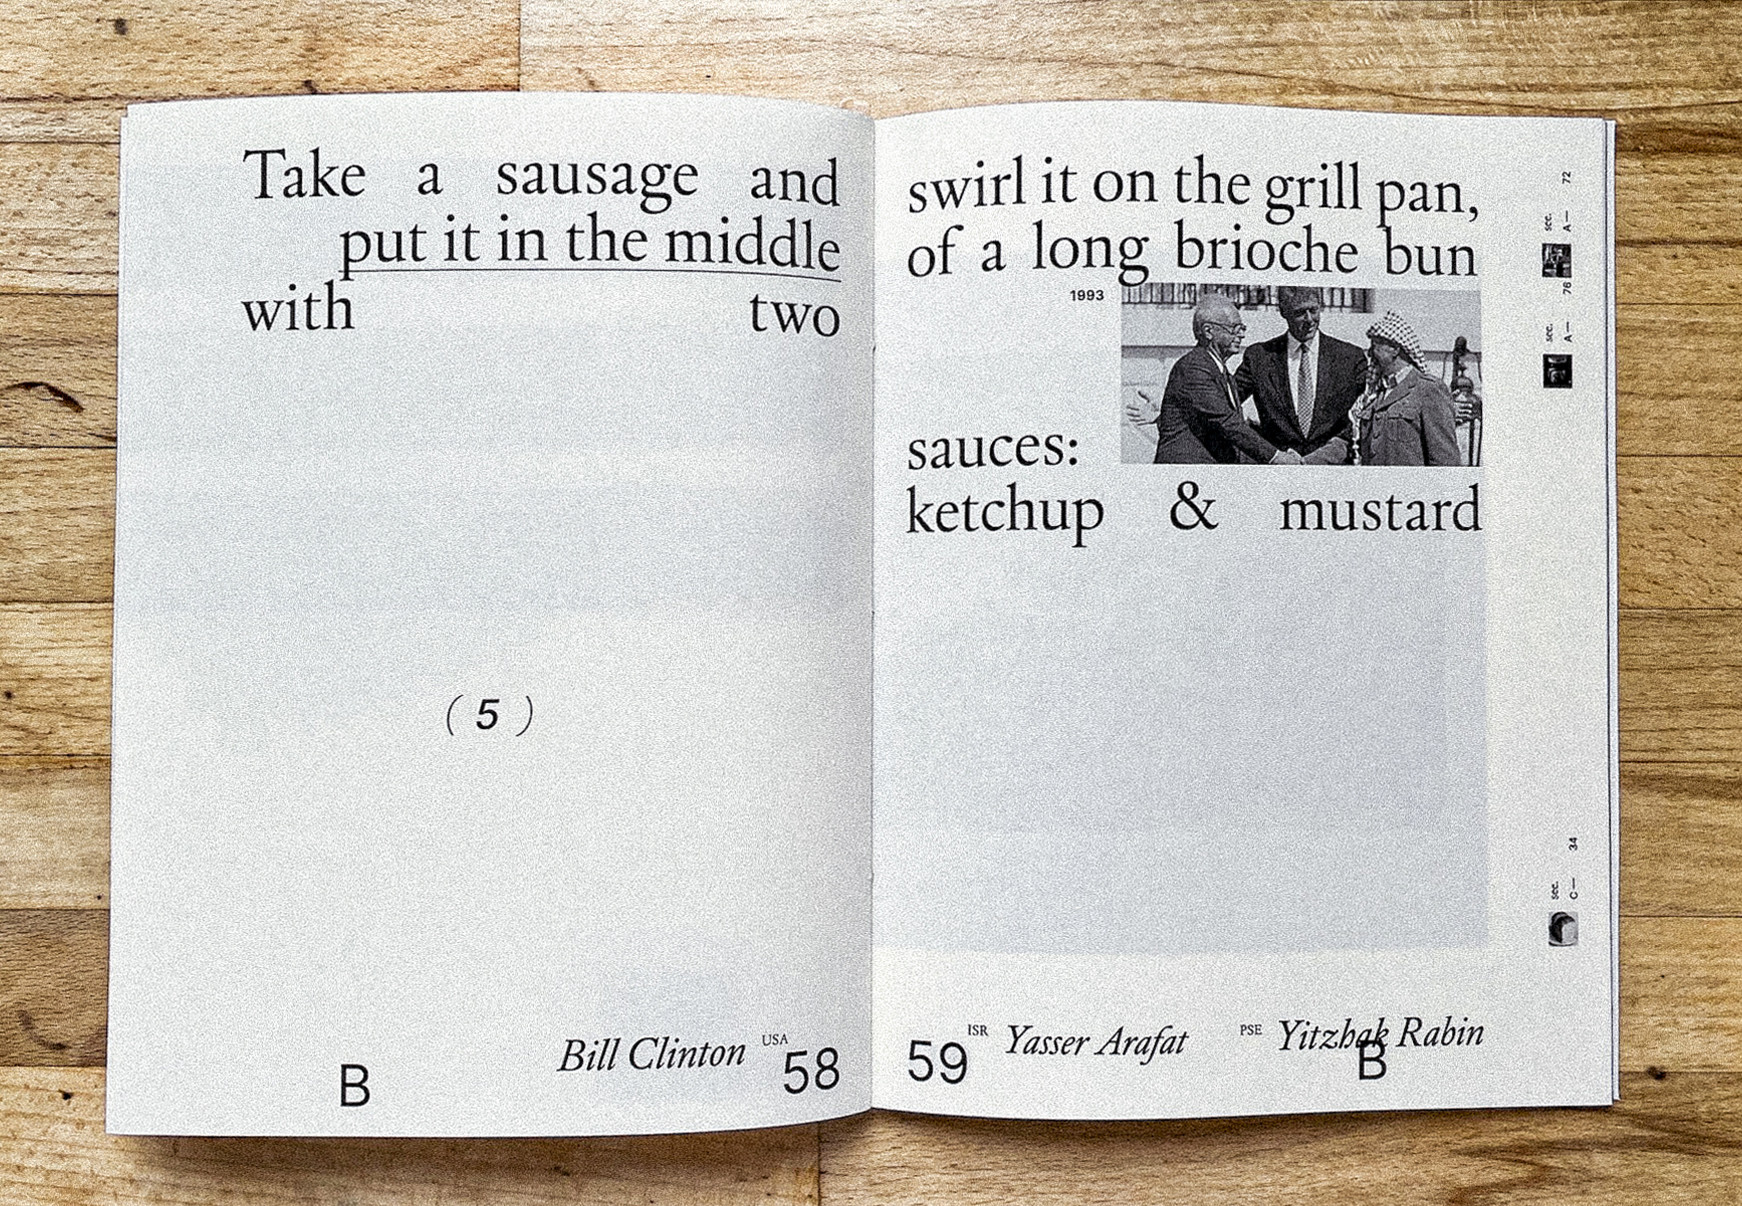 Take a sausage and
put it in the middle
with two
( 5 )
Bill Clinton USA
58
B
swirl it on the grill pan,
of a long brioche bun
1993
sauces:
ketchup & mustard
59
ISR Yasser Arafat PSE Yitzhak Rabin
B
see.
A— 72
see.
A— 76
see.
C— 34